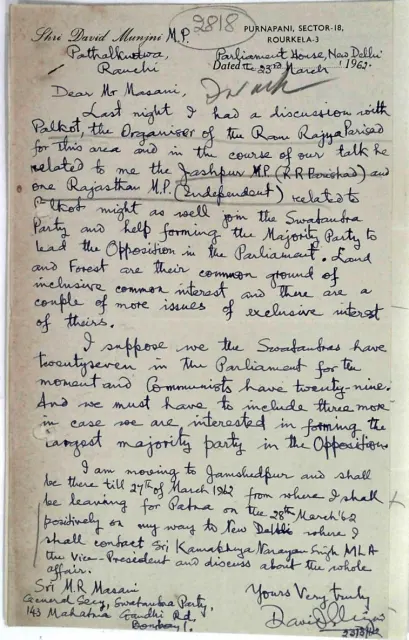 2818
Shri David Munjni M.P.
PURNAPANI, SECTOR-18,
ROURKELA-3
Pathalkudwa,
Ranchi
Parliament House, New Delhi
Dated the 23rd March 1962.
Dear Mr Masani,
Last night I had a discussion with
Palkot, the Organiser of the Ram Rajya Parisad
for this area and in the course of our talk he
related to me the Jashpur M.P. (R.R Parishad) and
one Rajasthan M.P. (Independent) related to
Palkot might as well join the Swatantra
Party and help forming the Majority Party to
lead the Opposition in the Parliament. Land
and Forest are their common ground of
inclusive common interest and there are a
couple of more issues of exclusive interest
of theirs.
I suppose we the Swatantras have
twentyseven in the Parliament for the
moment and Communists have twenty-nine.
And we must have to include three more
in case we are interested in forming the
largest majority party in the Opposition.
I am moving to Jamshedpur and shall
be there till 27th of March 1962 from where I shall
be leaving for Patna on the 28th March '62
positively on my way to New Delhi where I
shall contact Sri Kamakhya Narayan Singh MLA
the Vice-President and discuss about the whole
affair.
Yours Very truly
David
23/3/62
Sri M.R Masani
General Secy, Swatantra Party,
143 Mahatma Gandhi Rd,
Bombay 1.